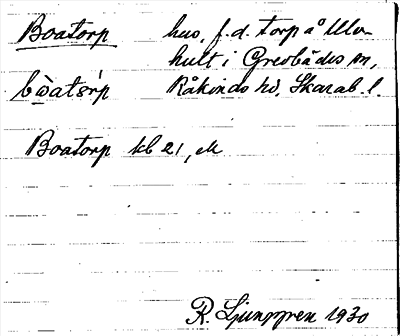 Boatorp hus, f.d. torp å Ulvs
hult i Grevbäcks sn,
Kåkinds hd, Skarab. l.
Boatorp kb 21, M
R. Ljunggren 1930